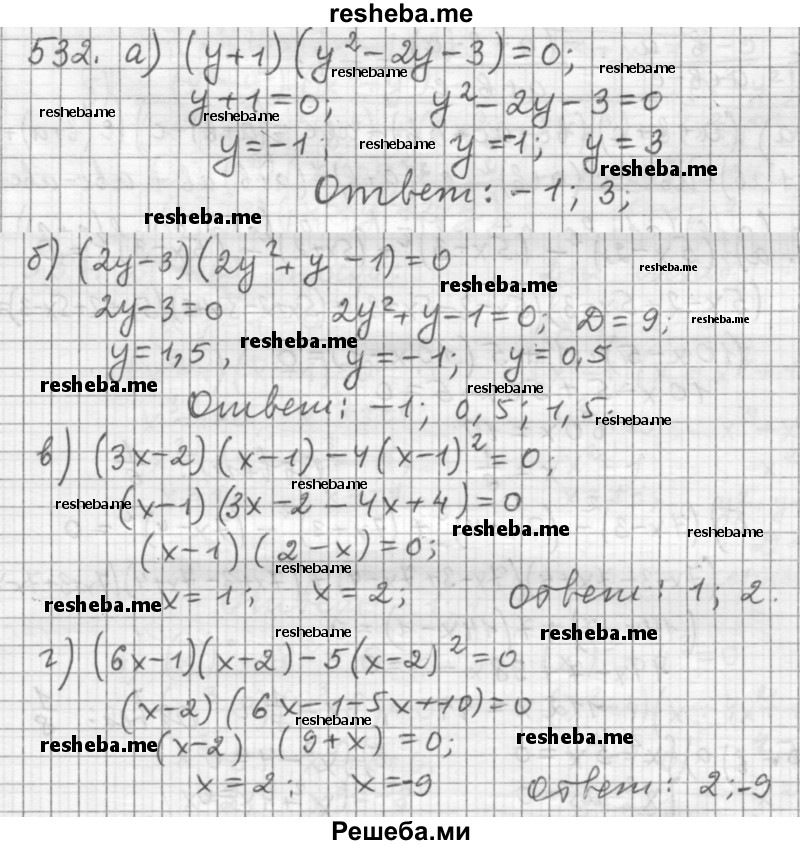 resheba.me
532. а) (y+1)(y²-2y-3)=0;
resheba.me resheba.me
resheba.me y+1=0; resheba.me y²-2y-3=0
y=-1; resheba.me y=-1; y=3
resheba.me
Ответ: -1; 3;
resheba.me
б) (2y-3)(2y²+y-1)=0
resheba.me resheba.me
2y-3=0 2y²+y-1=0; D=9; resheba.me
resheba.me
y=1,5, y=-1; y=0,5
resheba.me resheba.me
Ответ: -1; 0,5; 1,5. resheba.me
в) (3x-2)(x-1)-4(x-1)²=0;
resheba.me
resheba.me (x-1)(3x-2-4x+4)=0
resheba.me resheba.me
(x-1)(2-x)=0;
resheba.me
resheba.me x=1; x=2; Ответ: 1; 2.
resheba.me resheba.me
г) (6x-1)(x-2)-5(x-2)²=0
(x-2)(6x-1-5x+10)=0
resheba.me
resheba.me (x-2) (9+x)=0; resheba.me
x=2; x=-9 Ответ: 2;-9
Решеба.ми